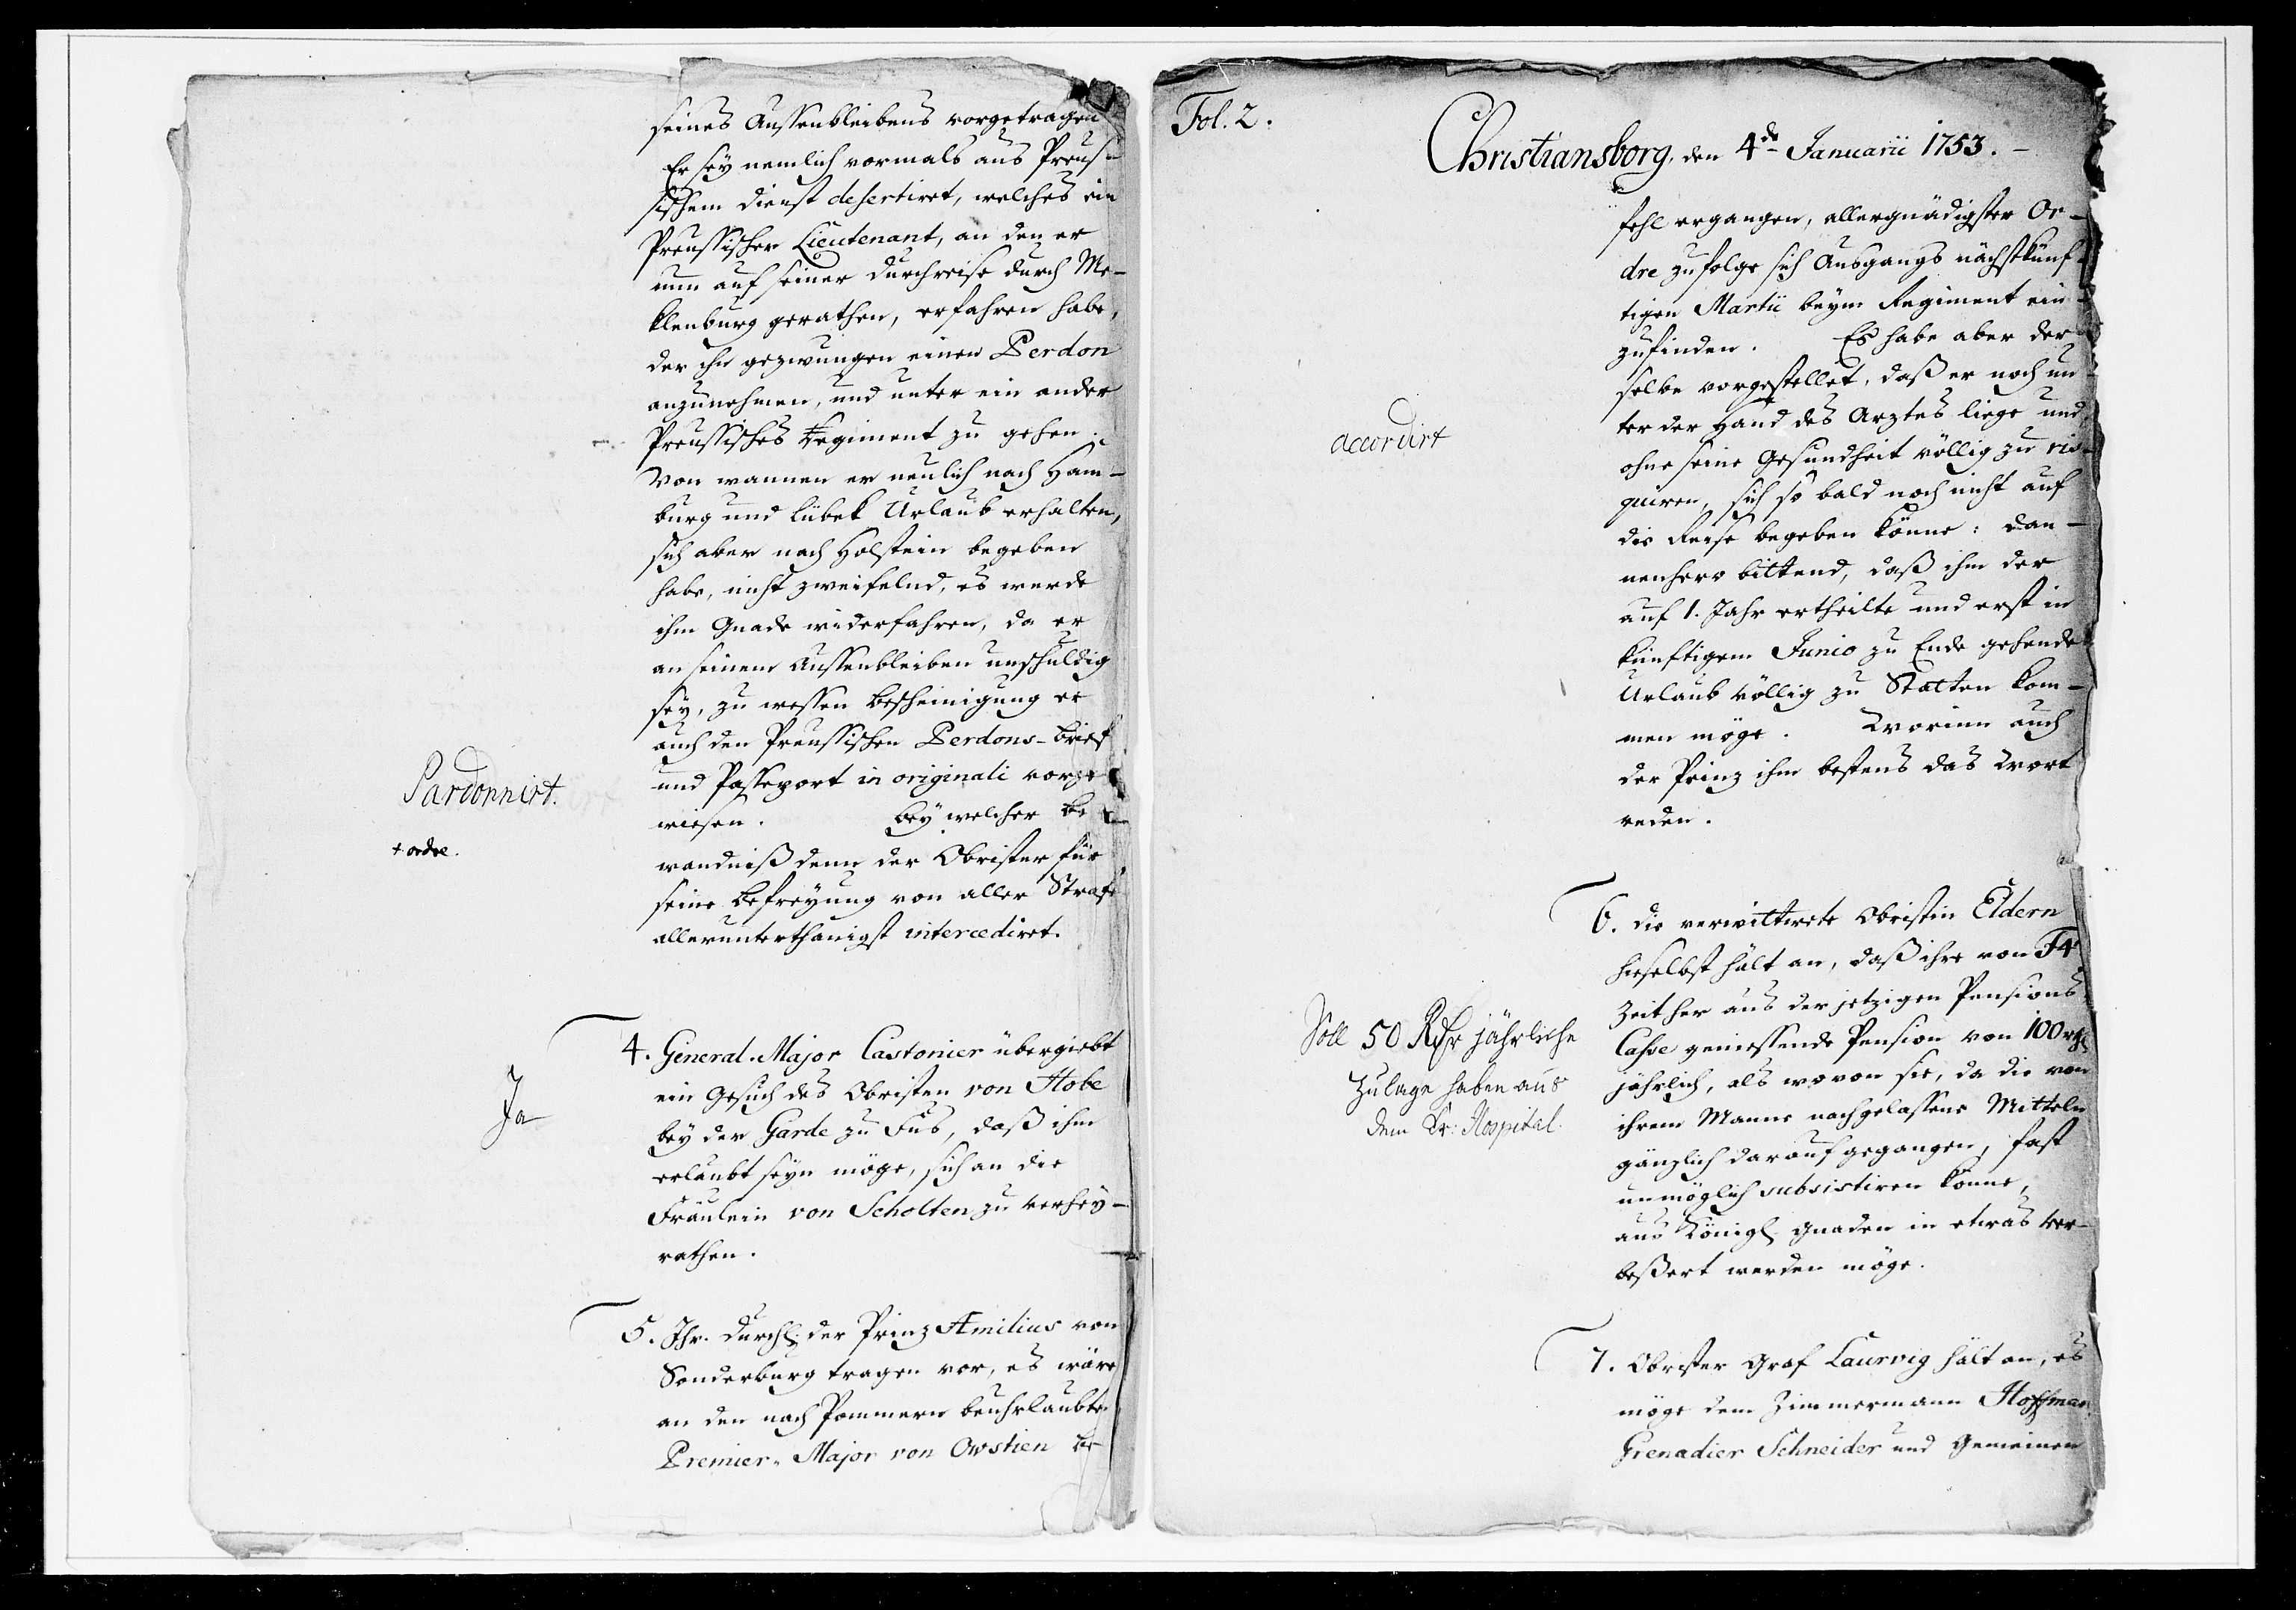 seines Aussenbleibens vorgetragen
Er sey nemlich vormals aus Preus-
sischem Dienst desertiret, welches ein
Preussischer Lieutenant, an den er
nun auf seiner Durchreise durch Me-
klenburg gerathen, erfahren habe,
der ihn gezwungen einen Perdon
anzunehmen, und unter ein ander
Preussisches Regiment zu gehen.
Von wannen er neulich nach Ham-
burg und Lübek Urlaub erhalten,
sich aber nach Holstein begeben
habe, nicht zweifelnd, es werde
ihm Gnade widerfahren, da er
an seinem Aussenbleiben unschuldig
sey, zu wessen Bescheinigung er
auch den Preussischen Perdons-Brief
und Passeport in originali vorge
wiesen. Bey welcher Be
wandniß denn der Obrister für
seine Befreyung von aller Strafe
allerunterthänigst intercediret.
Pardonnirt.
+ ordre.
4. General-Major Castonier übergiebt
ein Gesuch des Obristen von Hobe
bey der Garde zu Fus, daß ihm
erlaubt seyn möge, sich an die
Fräulein von Scholten zu verhey-
rathen.
Ja
5. Ihr. Durchl. der Prinz Æmilius von
Sonderburg tragen vor, es wäre
an den nach Pommern beuhrlaubten
Premier-Major von Owstien Be
Fol. 2.
Christiansborg, den 4de Januarii 1753.
fehl ergangen, allergnädigster Or-
dre zufolge sich Ausgangs nächstkünf-
tigen Martii beym Regiment ein-
zufinden. Es habe aber der-
selbe vorgestellet, daß er noch un-
ter der Hand des Arztes liege und
ohne seine Gesundheit völlig zu ris-
quiren, sich so bald noch nicht auf
die Reise begeben könne: Dan-
nenhero bittend, daß ihm der
auf 1. Jahr ertheilte und erst in
künftigem Junio zu Ende gehende
Urlaub völlig zu Statten kom-
men möge. Worinn auch
der Prinz ihm bestens das Wort
reden.
accordirt
6. Die verwittwete Obristin Eldern
hieselbst hält an, daß ihre von
Zeit her aus der jetzigen Pensions
Casse geniessende Pension von 100 rthl
jährlich, als wovon sie, da die von
ihrem Manne nachgelassene Mitteln
gänzlich darauf gegangen, fast
unmöglich subsistiren könne,
aus Königl. Gnaden in etwas ver-
beßert werden möge.
Soll 50 Rdr jährliche
Zulage haben aus
dem Kr: Hospital.
7. Obrister Graf Laurvig hält an, es
möge dem Zimmermann Hoffman
Grenadier Schneider und Gemeinen